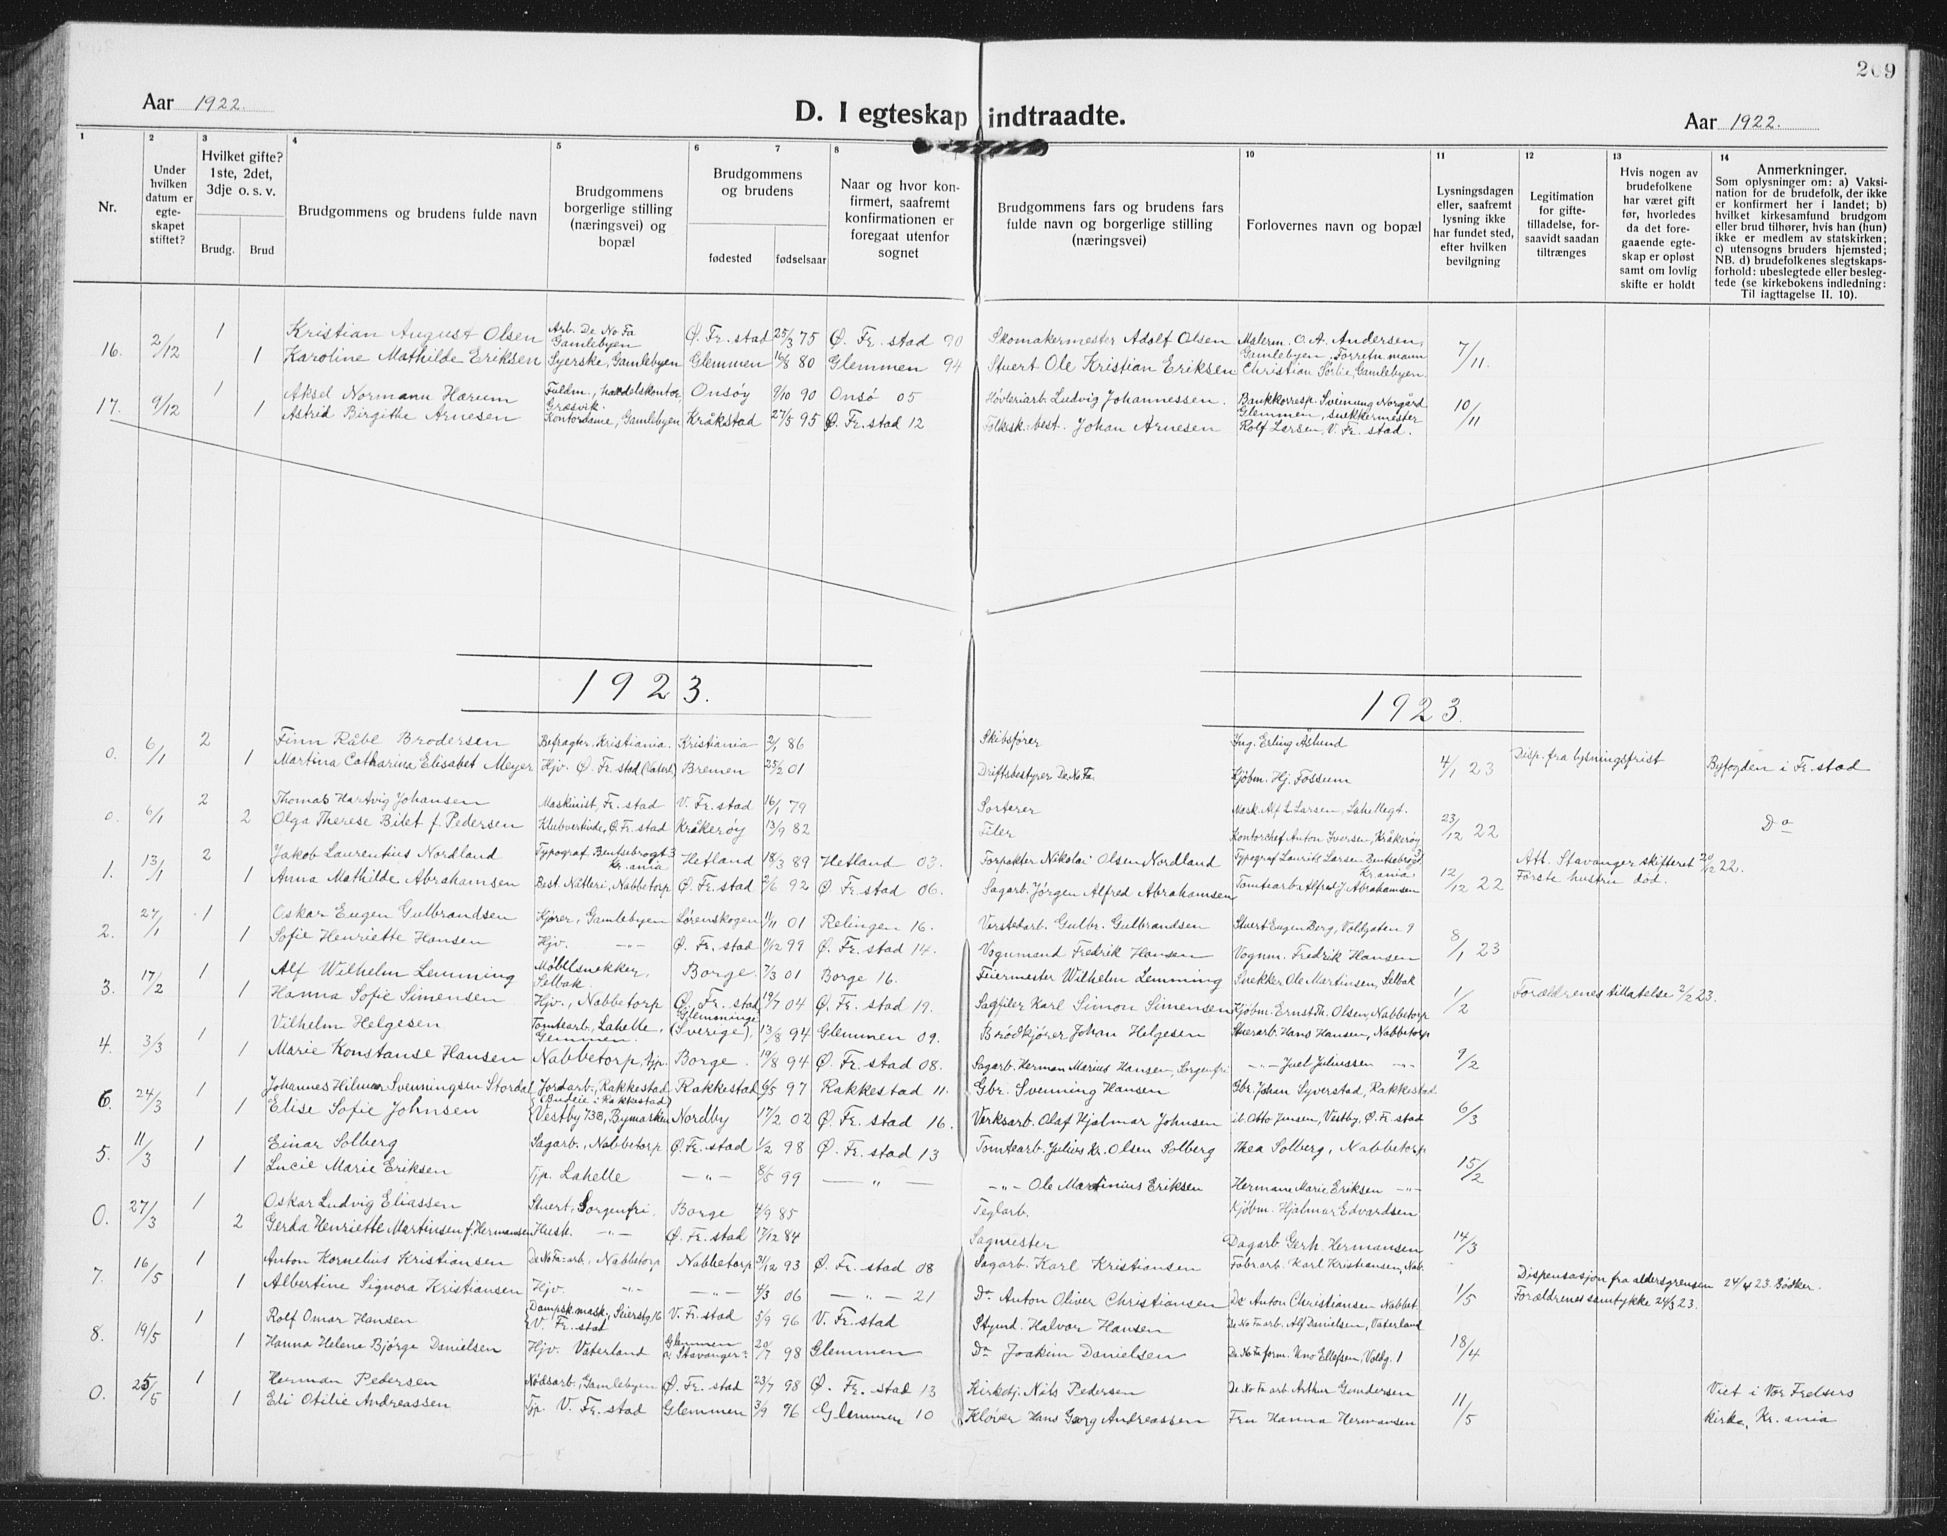 209
Aar 1922.
D. I egteskap indtraadte.
Aar 1922.
1 2 3 4 5 6 7 8 10 11 12 13 14
Nr.
Under hvilken datum er egte-skapet stiftet?
Hvilket gifte? 1ste, 2det, 3dje o. s. v.
Brudg. Brud
Brudgommens og brudens fulde navn
Brudgommens borgerlige stilling (næringsvei) og bopæl
Brudgommens og brudens
fødested fødselsaar
Naar og hvor kon-firmert, saafremt konfirmationen er foregaat utenfor sognet
Brudgommens fars og brudens fars fulde navn og borgerlige stilling (næringsvei)
Forlovernes navn og bopæl
Lysningsdagen eller, saafremt lysning ikke har fundet sted, efter hvilken bevilgning
Legitimation for gifte-tilladelse, for-saavidt saadan tiltrænges
Hvis nogen av brudefolkene har været gift før, hvorledes da det fore-gaaende egte-skap er opløst samt om lovlig skifte er holdt
Anmerkninger.
Som oplysninger om: a) Vaksi-nation for de brudefolk, der ikke er konfirmert her i landet; b) hvilket kirkesamfund brudgom eller brud tilhører, hvis han (hun) ikke er medlem av statskirken; c) utensogns bruders hjemsted; NB. d) brudefolkenes slegtskaps-forhold: ubeslegtede eller besleg-tede (se kirkebokens indledning: Til iagttagelse II. 10).
16. 2/12 1 Kristian August Olsen Arb. De No Fa Gamlebyen Ø. Fr. stad 25/3 75 Ø. Fr. stad 90 Skomakermester Adolf Olsen Malerm. O. A. Andersen, Gamlebyen, Forretn. mann 7/11.
1 Karoline Mathilde Eriksen Syerske, Gamlebyen Glemmen 16/8 80 Glemmen 94 Stuert Ole Kristian Eriksen Christian Sørlie, Gamlebyen
17. 9/12 1 Aksel Normann Harum Fuldm., handelskontor, Græsvik. Onsøy 9/10 90 Onsø 05 Høvleriarb. Ludvig Johannessen. Bankkorresp. Sveinung Norgård Glemmen, snekkermester 10/11
1 Astrid Birgithe Arnesen Kontordame, Gamlebyen Kråkstad 27/5 95 Ø. Fr. stad 12 Folksk. best. Johan Arnesen Rolf Larsen, V. Fr. stad.
1923. 1923.
0. 6/1 2 Finn Råbe Brodersen Befragter, Kristiania. Kristiania 2/1 86 Skibsfører Ing. Erling Åslund 4/1 23 Disp. fra lysningsfrist Byfogden i Fr. stad
1 Martina Catharina Elisabet Meyer Hjv. Ø. Fr. stad (Vaterl) Bremen 23/2 01 Driftsbestyrer De No Fa. Kjøbm. Hj. Fossum
0. 6/1 2 Thomas Hartvig Johansen Maskinist, Fr. stad V. Fr. stad 16/1 79 Sorterer Mask. Alf L. Larsen, Lahellegt. 23/12 22 Do
2 Olga Therese Bilet f. Pedersen Klubvertinde, Ø. Fr. stad Kråkerøy 13/9 82 Filer Kontorchef Anton Iversen, Kråkerøy
1. 13/1 2 Jakob Laurentius Nordland Typograf. Bentsebrogt 3 Kr. ania Hetland 18/3 89 Hetland 03. Forpakter Nikolai Olsen Nordland Typograf Laurits Larsen Bentsebrogt 3 Kr. ania 12/12 22 Att. Stavanger skifteret 20/12 22. Første hustru død.
1 Anna Mathilde Abrahamsen Best. Nätteri, Nabbetorp Ø. Fr. stad 2/6 92 Ø. Fr. stad 06. Sagarb. Jørgen Alfred Abrahamsen Tomtearb. Alfred J. Abrahamsen
2. 27/1 1 Oskar Eugen Gulbrandsen Kjører, Gamlebyen Lørenskogen 11/11 01 Relingen 16. Verstedarb. Gulbr. Gulbrandsen Stuert Eugen Berg, Voldgaten 9 8/1 23
1 Sofie Henriette Hansen Hjv. -"- Ø. Fr. stad 11/12 99 Ø. Fr. stad 14. Vognmand Fredrik Hansen Vognm. Fredrik Hansen
3. 17/2 1 Alf Wilhelm Lemming Møbelsnekker, Selbak Borge 7/3 01 Borge 16. Feiermester Wilhelm Lemming Snekker Ole Martinsen, Selbak 1/2 Forældrenes tillatelse 2/2 23.
1 Hanna Sofie Simensen Hjv., Nabbetorp Ø. Fr. stad 19/7 04 Ø. Fr. stad 19. Sagfiler Karl Simon Simensen Kjøbm. Ernst Th. Olsen, Nabbetorp
4. 3/3 1 Vilhelm Helgesen Tomtearb., Lahelle, Glemmen. Glemminge (Sverige). 13/8 94 Glemmen 09. Brødkjører Johan Helgesen Stuerarb. Hans Hansen, Nabbetorp 9/2
1 Marie Konstanse Hansen Nabbetorp, Tjp. Borge. 19/8 94 Ø. Fr. stad 08. Sagarb. Herman Marius Hansen, Sorgenfri -"- Juel Juliussen -"-
6. 24/3 1 Johannes Hilmar Svenningsen Stordal Jordarb., Rakkestad Rakkestad 6/5 97 Rakkestad 11. Gbr. Svenning Hansen Gbr. Johan Syverstad, Rakkestad 6/3
1 Elise Sofie Johnsen (Budeie i Rakkestad) Vestby 73B, Bymarken Nordby 17/2 02 Ø. Fr. stad 16. Verksarb. Olaf Hjalmar Johnsen ib. Otto Jensen, Vestby, Ø. Fr. stad
5. 11/3 1 Einar Solberg Sagarb., Nabbetorp Ø. Fr. stad 1/2 98 Ø. Fr. stad 13 Tomtearb. Julius Kr. Olsen Solberg Thea Solberg, Nabbetorp 15/2
1 Lucie Marie Eriksen Tjp. Lahelle -"- 8/5 99 -"- -"- Ole Martinius Eriksen Hermane Marie Eriksen -"-
0. 27/3 1 Oskar Ludvig Eliassen Stuert, Sorgenfri. Borge 4/9 85 Teglarb. Kjøbm. Hjalmar Edvardsen 14/3
2 Gerda Henriette Martinsen f. Hermansen Husk. -"- Ø. Fr. stad 17/12 84 Sagmester Dagarb. Gerh. Hermansen
7. 16/5 1 Anton Kornelius Kristiansen De No Fa-arb., Nabbetorp Nabbetorp 31/12 93 Ø. Fr. stad 08 Sagarb. Karl Kristiansen Fabr. arb. Karl Kristiansen, Nab. 1/5 Dispensasjon fra aldersgrensen 24/4 23. Bødker. Forældrenes samtykke 24/3 23.
1 Albertine Signora Kristiansen Hjv. "- -"- 4/3 06 -"- 21 Do Anton Oliver Christiansen Do Anton Christiansen Nabbet.
8. 19/5 1 Rolf Omar Hansen Dampsk. mask., Seiersbg 16 V. Fr. stad V. Fr. stad 5/9 96 V. Fr. stad Styrmd. Halvor Hansen De No Fa arb. Alf Danielsen, Vaterland 18/4
1 Hanna Helene Bjørge Danielsen Hjv. Vaterland Glemmen Stavanger? 20/7 98 Glemmen Do Joakim Danielsen De No Fa form. Uno Ellefsen, Voldg. 1
0. 25/5 1 Herman Pedersen Nødsarb., Gamlebyen Ø. Fr. stad 23/7 98 Ø. Fr. stad 13 Kirketj. Nils Pedersen De No Fa arb. Arthur Gundersen 11/5 Viet i Vor Frelsers kirke, Kr. ania
1 Eli Otilie Andreassen Tjp. V. Fr. stad Glemmen 3/9 96 Glemmen 10 Kløver Hans Georg Andreassen Fru Hanna Hermansen